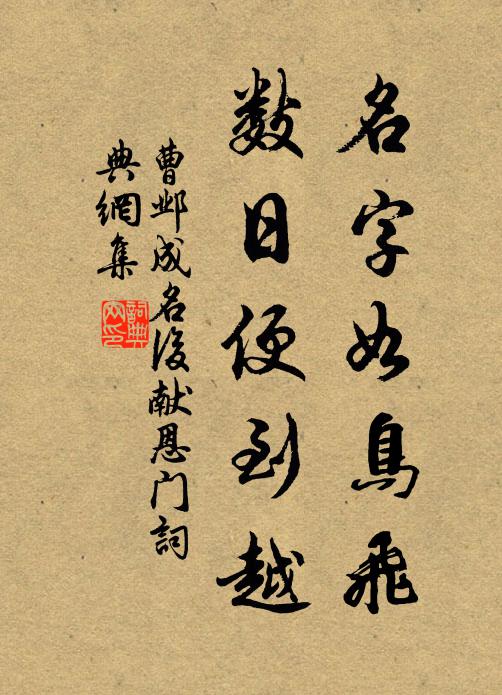 名字如鳥飛
数日便到越
曹邺成名後献恩门詞
典網集
詞典
网印